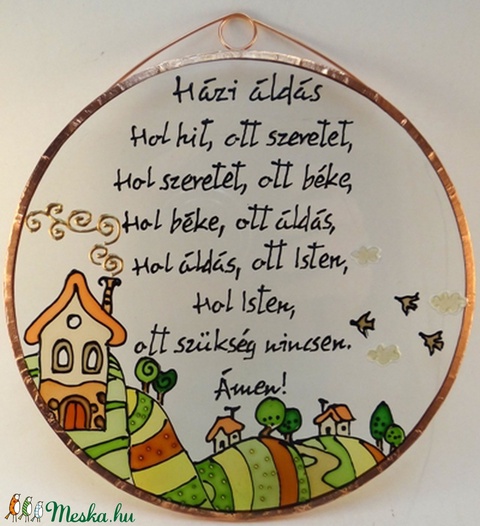 Házi áldás
Hol hit, ott szeretet,
Hol szeretet, ott béke,
Hol béke, ott áldás,
Hol áldás, ott Isten,
Hol Isten,
ott szükség nincsen.
Ámen!
Meska.hu